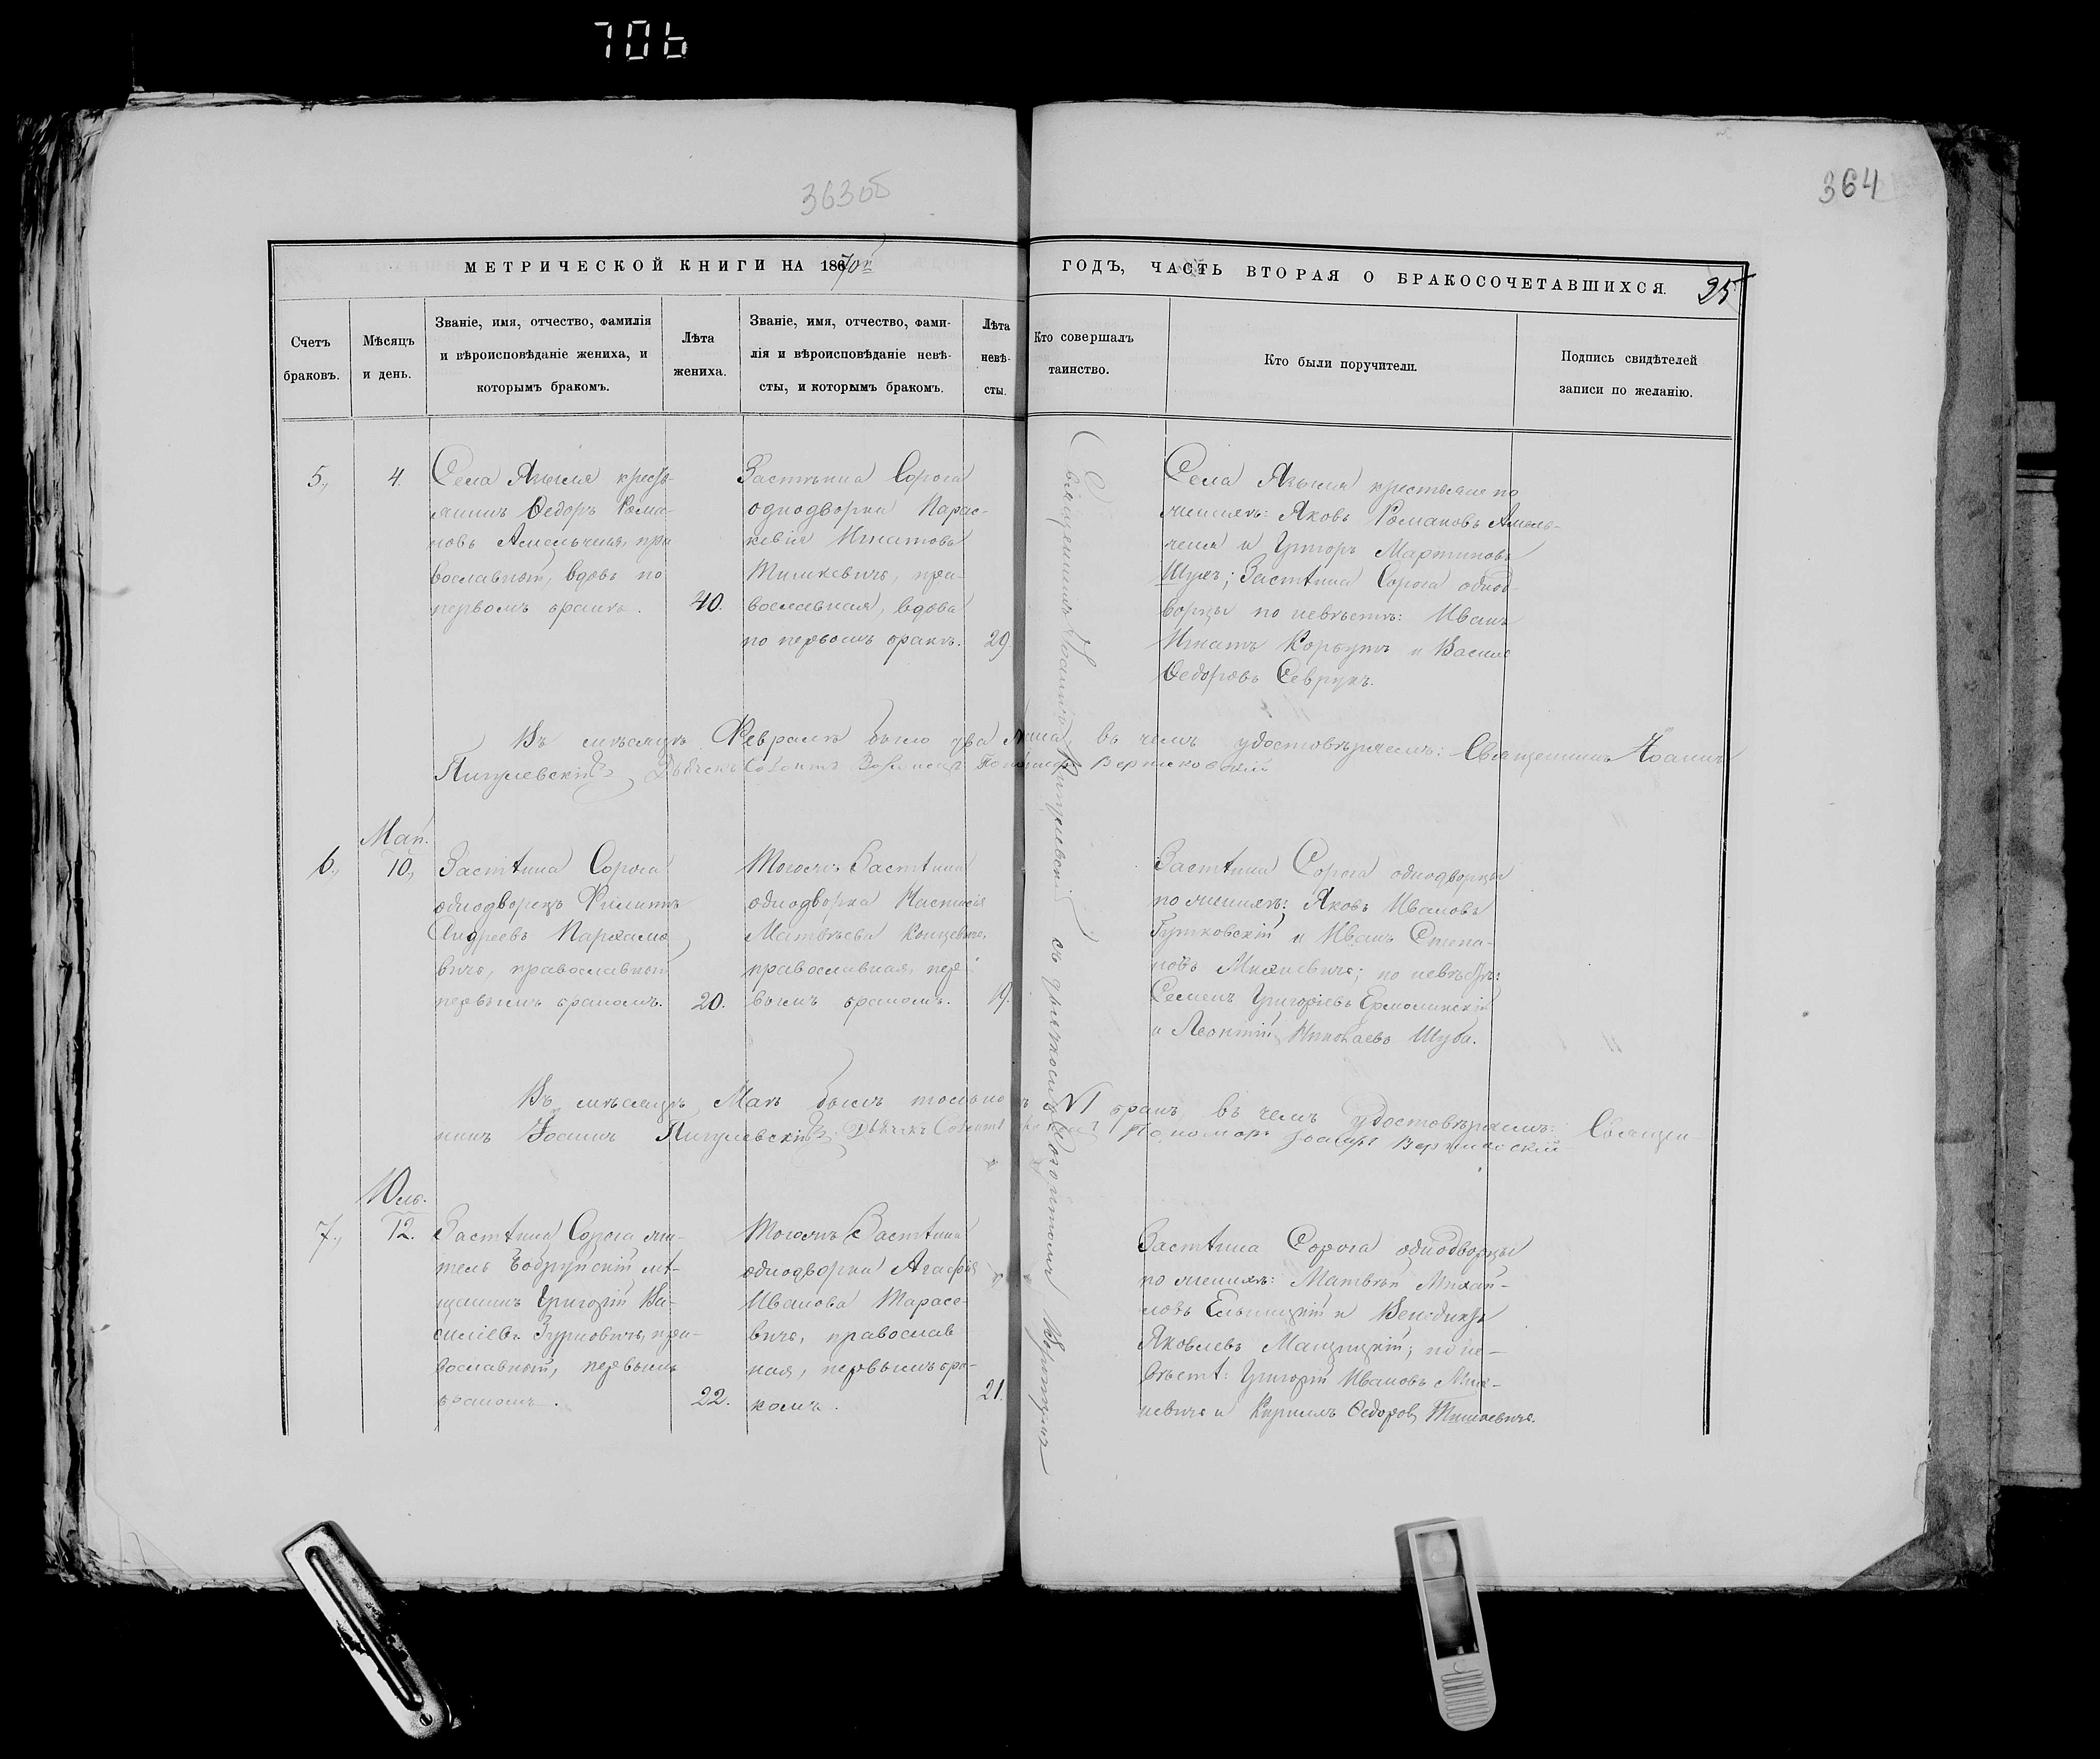 706
363об
364
МЕТРИЧЕСКОЙ КНИГИ НА 1870й ГОДЪ, ЧАСТЬ ВТОРАЯ О БРАКОСОЧЕТАВШИХСЯ.
25
Счетъ
браковъ.
Мѣсяцъ
и день.
Званіе, имя, отчество, фамилія
и вѣроисповѣданіе жениха, и
которымъ бракомъ.
Лѣта
жениха.
Званіе, имя, отчество, фами-
лія и вѣроисповѣданіе невѣ-
сты, и которымъ бракомъ.
Лѣта
невѣ-
сты.
Кто совершалъ
таинство.
Кто были поручители.
Подпись свидѣтелей
записи по желанію.
5.,
4.
Села Языля кресть-
янинъ Ѳедоръ Рома-
новъ Амельченя, пра
вославный, вдовъ по
первомъ бракѣ.
40.
Застѣнка Сорога
однодворка Парас-
кевія Игнатова
Тишкевичъ, пра-
вославная, вдова
по первомъ бракѣ.
29.
Священникъ Іоаннъ Пигулевскій съ дьячкомъ
Села Языля крестьяне по
женихѣ: Яковъ Романовъ Амель-
ченя и Григоръ Мартиновъ
Шукъ; Застѣнка Сорога однод-
ворцы по невѣстѣ: Иванъ
Игнатъ Корбутъ и Василь
Ѳедоровъ Севрукъ.
Въ мѣсяцѣ Февралѣ было два брака, въ чемъ удостовѣряемъ: Священникъ Іоаннъ
Пигулевскій, Дьячекъ Пономарь
Мая.
6.,
10.,
Застѣнка Сорога
однодворецъ Филиппъ
Андреевъ Пархамо-
вичъ, православный
первымъ бракомъ.
20.
Тогожъ Застѣнка
однодворка Настасія
Матвѣева
православная, пер-
вымъ бракомъ.
19.
Застѣнка Сорога однодворцы
по женихѣ: Яковъ Ивановъ
Гутковскій и Иванъ Степа-
новъ Михневичъ; по невѣстѣ:
Семенъ Григорьевъ Ермолинскій
и Леонтій Николаевъ Шуба.
Въ мѣсяцѣ Маѣ былъ только бракъ въ чемъ удостовѣряемъ: Священ-
никъ Іоаннъ Пигулевскій, Дьячекъ Пономарь
Юль.
7.,
12.
Застѣнка Сорога жи-
тель Бобруйскій мѣ-
щанинъ Григорій Ва-
силіевъ пра-
вославный, первымъ
бракомъ.
22.
Тогожъ Застѣнка
однодворка Агафія
Иванова Тарасе-
вичъ, православ
ная, первымъ бра-
комъ.
21.
Застѣнка Сорога однодворцы
по женихѣ: Матвѣй Михай-
ловъ Ельницкій и Венедиктъ
Яковлевъ по не-
вѣстѣ: Григорій Ивановъ Мих-
невичъ и Кириллъ Ѳедоровъ Тишкевичъ.